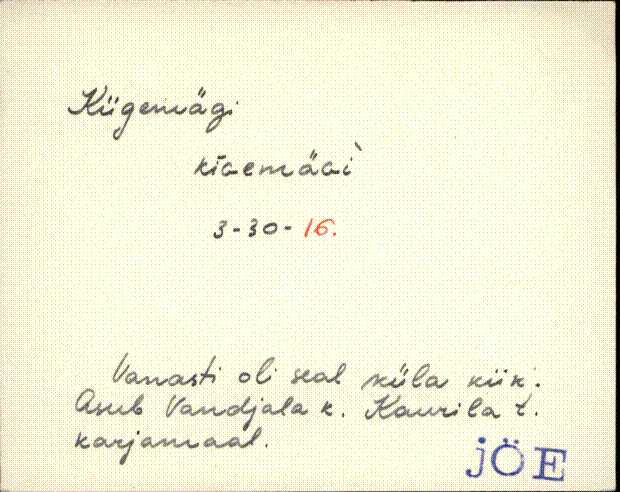 Kiigemägi
kīGemäGì
3-30-16.
Vanasti oli seal küla kiik.
Asub Vandjala k. Kaurila t.
karjamaal.
JÕE